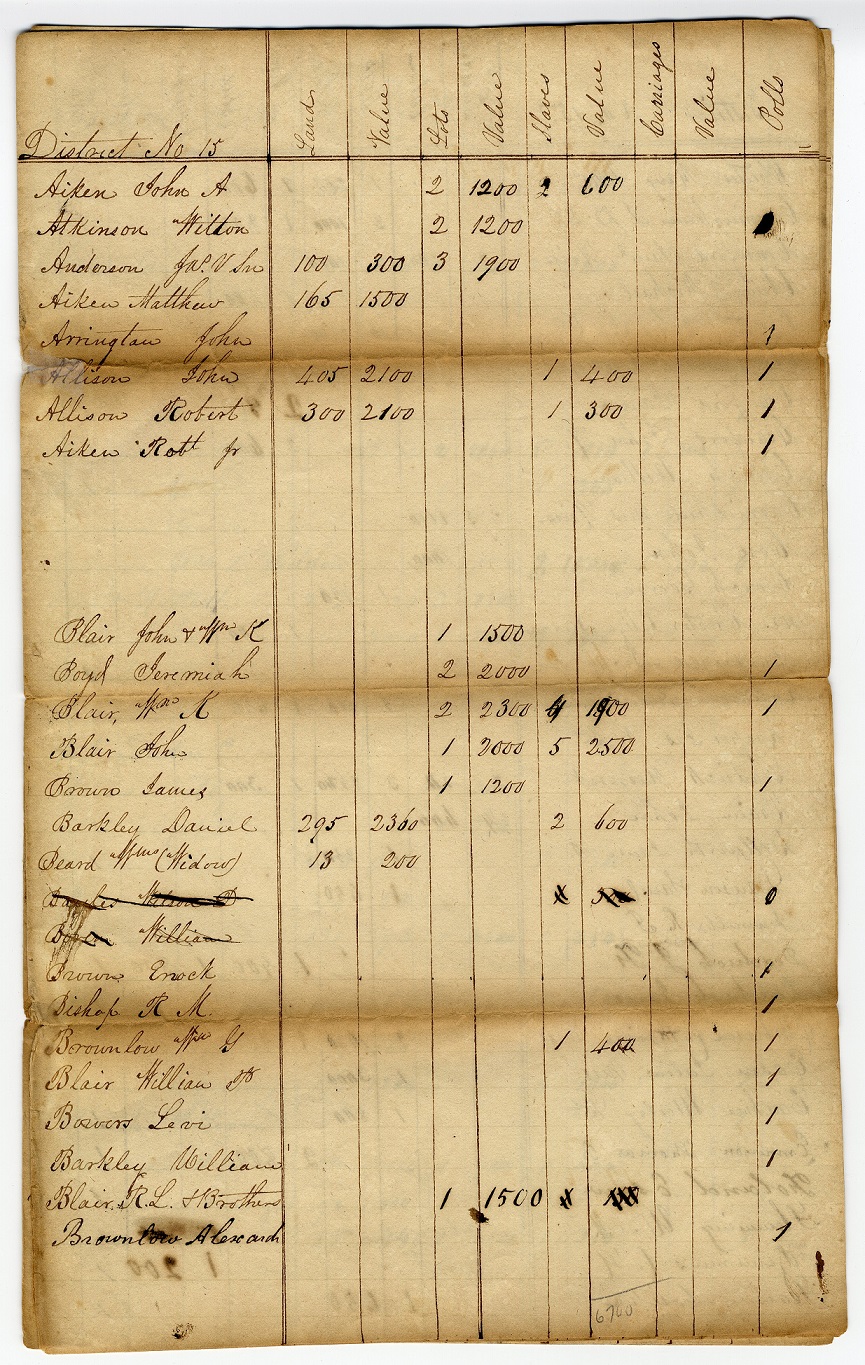 District No 15 Land Value Lots Value Slaves Value Carriages Value Polls
Aiken John A 2 1200 2 600
Atkinson Wilton 2 1200
Anderson Jas. V Sn 100 300 3 1900
Aiken Matthew 165 1500
Arrington John 1
Allison John 405 2100 1 400 1
Allison Robert 300 2100 1 300 1
Aiken Robt Jr 1
Blair John & Wm K 1 1500
Boyd Jeremiah 2 2000 1
Blair, Wm K 2 2300 4 1900 1
Blair John 1 2000 5 2500
Brown James 1 1200 1
Barkley Daniel 295 2360 2 600
Beard Wms (Widow) 13 200
Bayles Watson D 0
William
Brown Enock 1
Bishop R M. 1
Brownlow Wm G 1 400 1
Blair William P 1
Bowers Levi 1
Barkley William 1
Blair, R. L. & Brothers 1 1500
Brownlow Alexand 1
6700